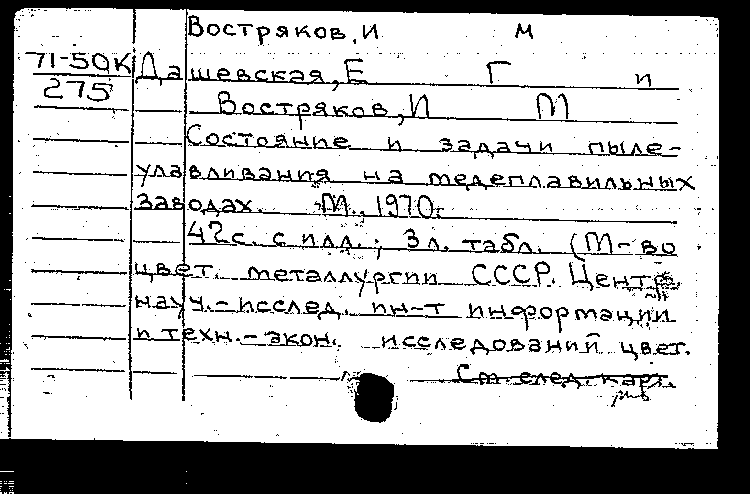 Востряков, И М
71-50К
275
Дашевская, Е Г и
Востряков, И М
Состояние и задачи пыле-
улавливания на медеплавильных
заводах. М., 1970.
42с. с илл.; 3л. табл. (М-во
цвет. металлургии СССР. Центр.
науч.-исслед. ин-т информации
и техн.-экон. исследований цвет.
См. след. карт.